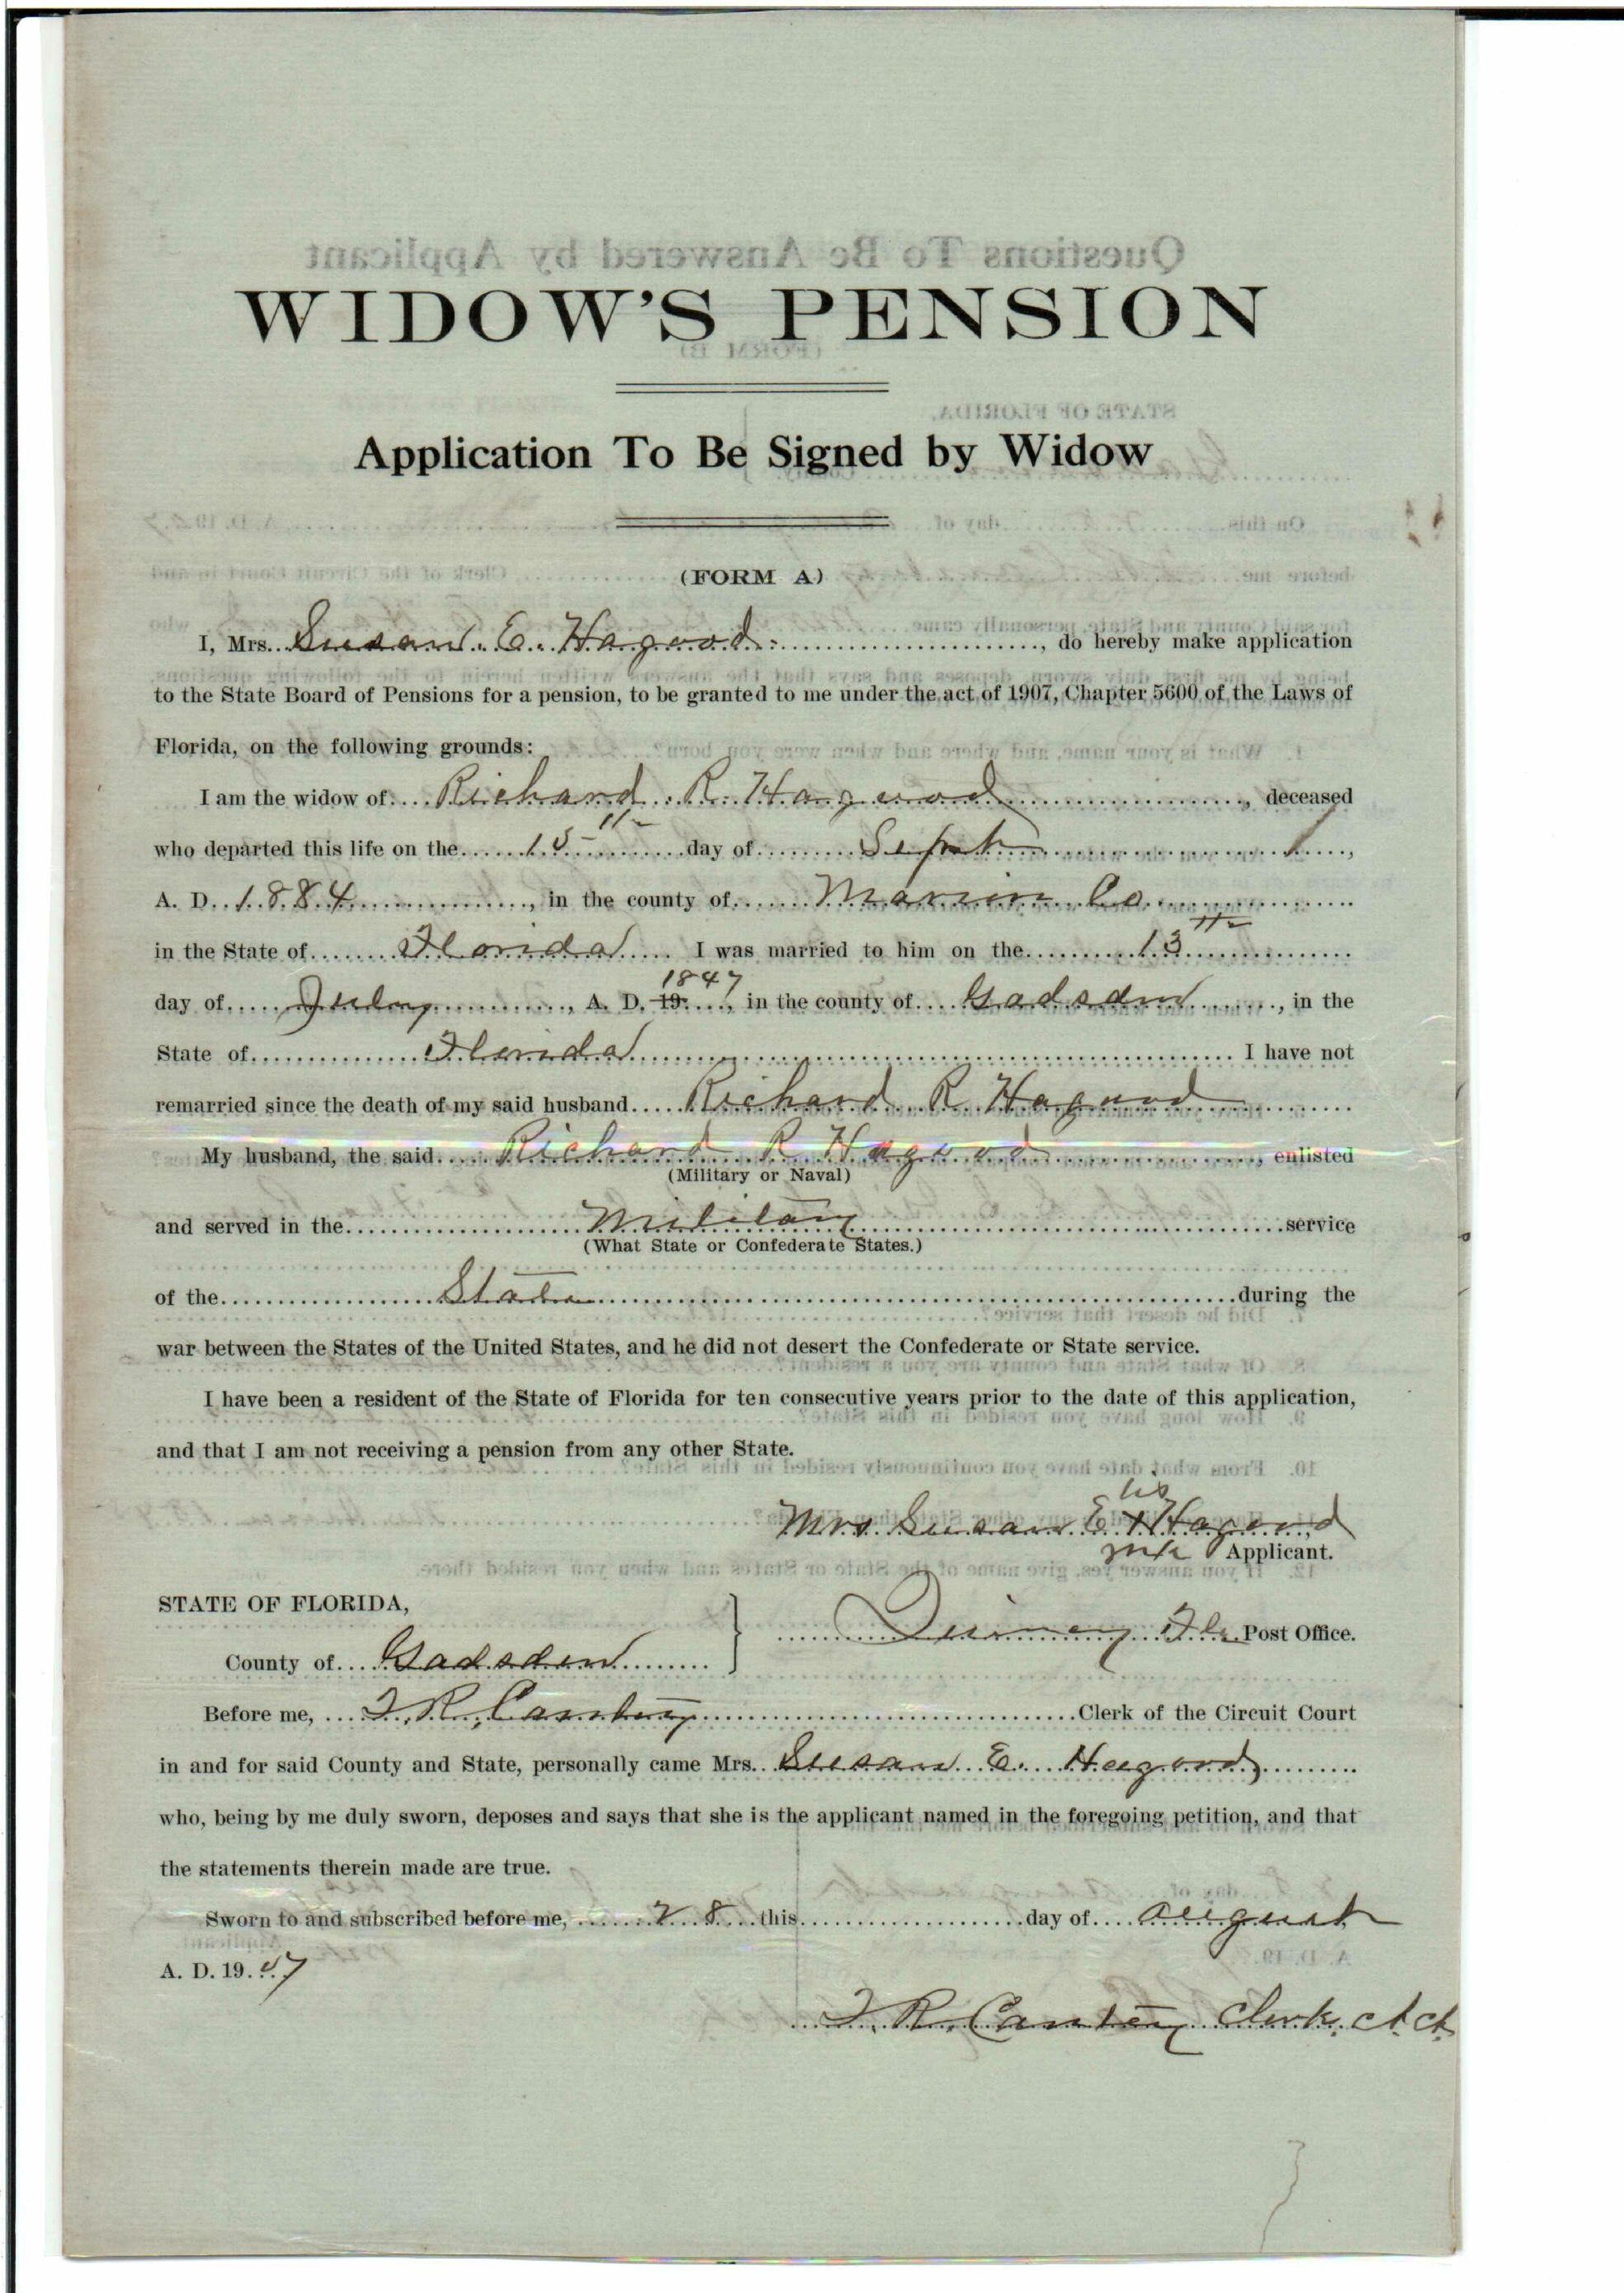 WIDOW'S PENSION
Application To Be Signed by Widow
(FORM A)
I, Mrs. Susan E. Hagood, do hereby make application
to the State Board of Pensions for a pension, to be granted to me under the act of 1907, Chapter 5600 of the Laws of
Florida, on the following grounds:
I am the widow of Richard R. Hagood, deceased
who departed this life on the 15th day of Sept,
A. D. 1884, in the county of Marion Co.
in the State of Florida I was married to him on the 13th
day of July, A. D. 19 1847, in the county of Gadsden, in the
State of Florida I have not
remarried since the death of my said husband Richard R Hagood
My husband, the said Richard R Hagood, enlisted
(Military or Naval)
and served in the Military service
(What State or Confederate States.)
of the State during the
war between the States of the United States, and he did not desert the Confederate or State service.
I have been a resident of the State of Florida for ten consecutive years prior to the date of this application,
and that I am not receiving a pension from any other State.
Mrs. Susan E. X Hagood
mk Applicant.
STATE OF FLORIDA,
Quincy Fla. Post Office.
County of Gadsden
Before me, Clerk of the Circuit Court
in and for said County and State, personally came Mrs. Susan E. Hagood,
who, being by me duly sworn, deposes and says that she is the applicant named in the foregoing petition, and that
the statements therein made are true.
Sworn to and subscribed before me, 28 this day of August
A. D. 1907
R. Cantey Clerk.